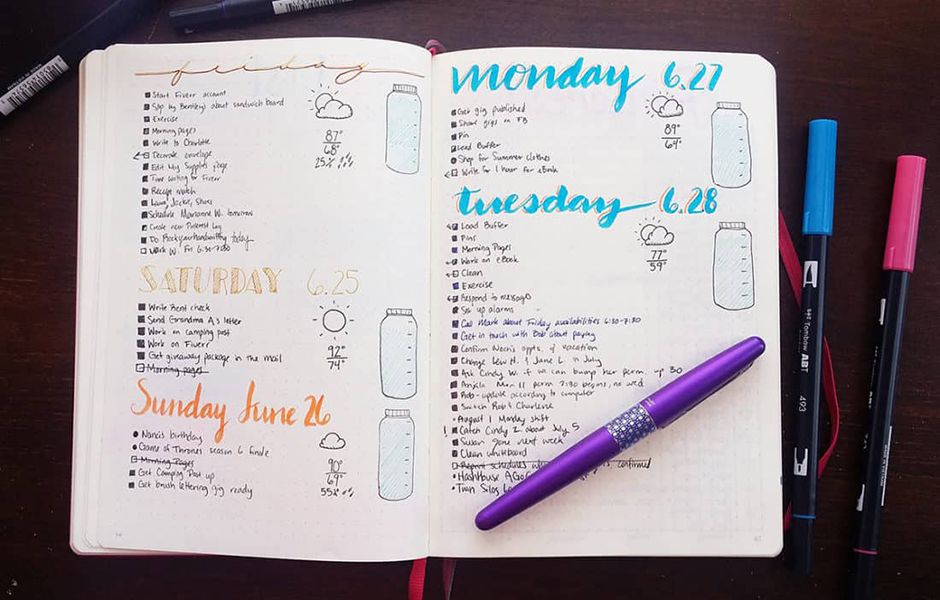 friday
Start Fiverr account
Stop by Bentley's about sandwich board
Exercise
Morning pages
Write to Charlotte
Decorate envelope
Edit My Supplies page
Time writing for Fiverr
Recipe match
Schedule Marianne W. tomorrow
Create new Pinterest log
Do Rockyourhandwriting today
Work w. Fri 6:30-7:30
87°
68°
25%
SATURDAY 6.25
Write Rent check
Send Grandma A's letter
Work on camping post
Work on Fiverr
Get giveaway package in the mail
Morning pages
92°
74°
Sunday June 26
Nanci's birthday
Game of Thrones season 6 finale
Morning Pages
Get Camping Post up
Get brush lettering gig ready
90°
69°
55%
monday 6.27
Get gig published
Share gigs on FB
Pin
Load Buffer
Shop for Summer clothes
Write for 1 hour for eBook
89°
64°
tuesday 6.28
Load Buffer
Pins
Morning Pages
Work on eBook
Clean
Exercise
Respond to messages
Set up alarms
Call Mark about Friday availabilities 6:30-7:30
Get in touch with Bob about paying
Confirm Neen's appts. & vacation
Change Lew N. & Jane L. in July
Ask Cindy W if we can bump her perm. up 30
Angela Mon 11 perm 2:30 begins, no wed
Rob - update according to computer
Switch Rob & Charlene
August 1 Monday shift
! Catch Cindy Z about July 5
Swan gone next week
Clean whiteboard
Report schedules confirmed
77°
59°
Tombow ABT
493
ABT